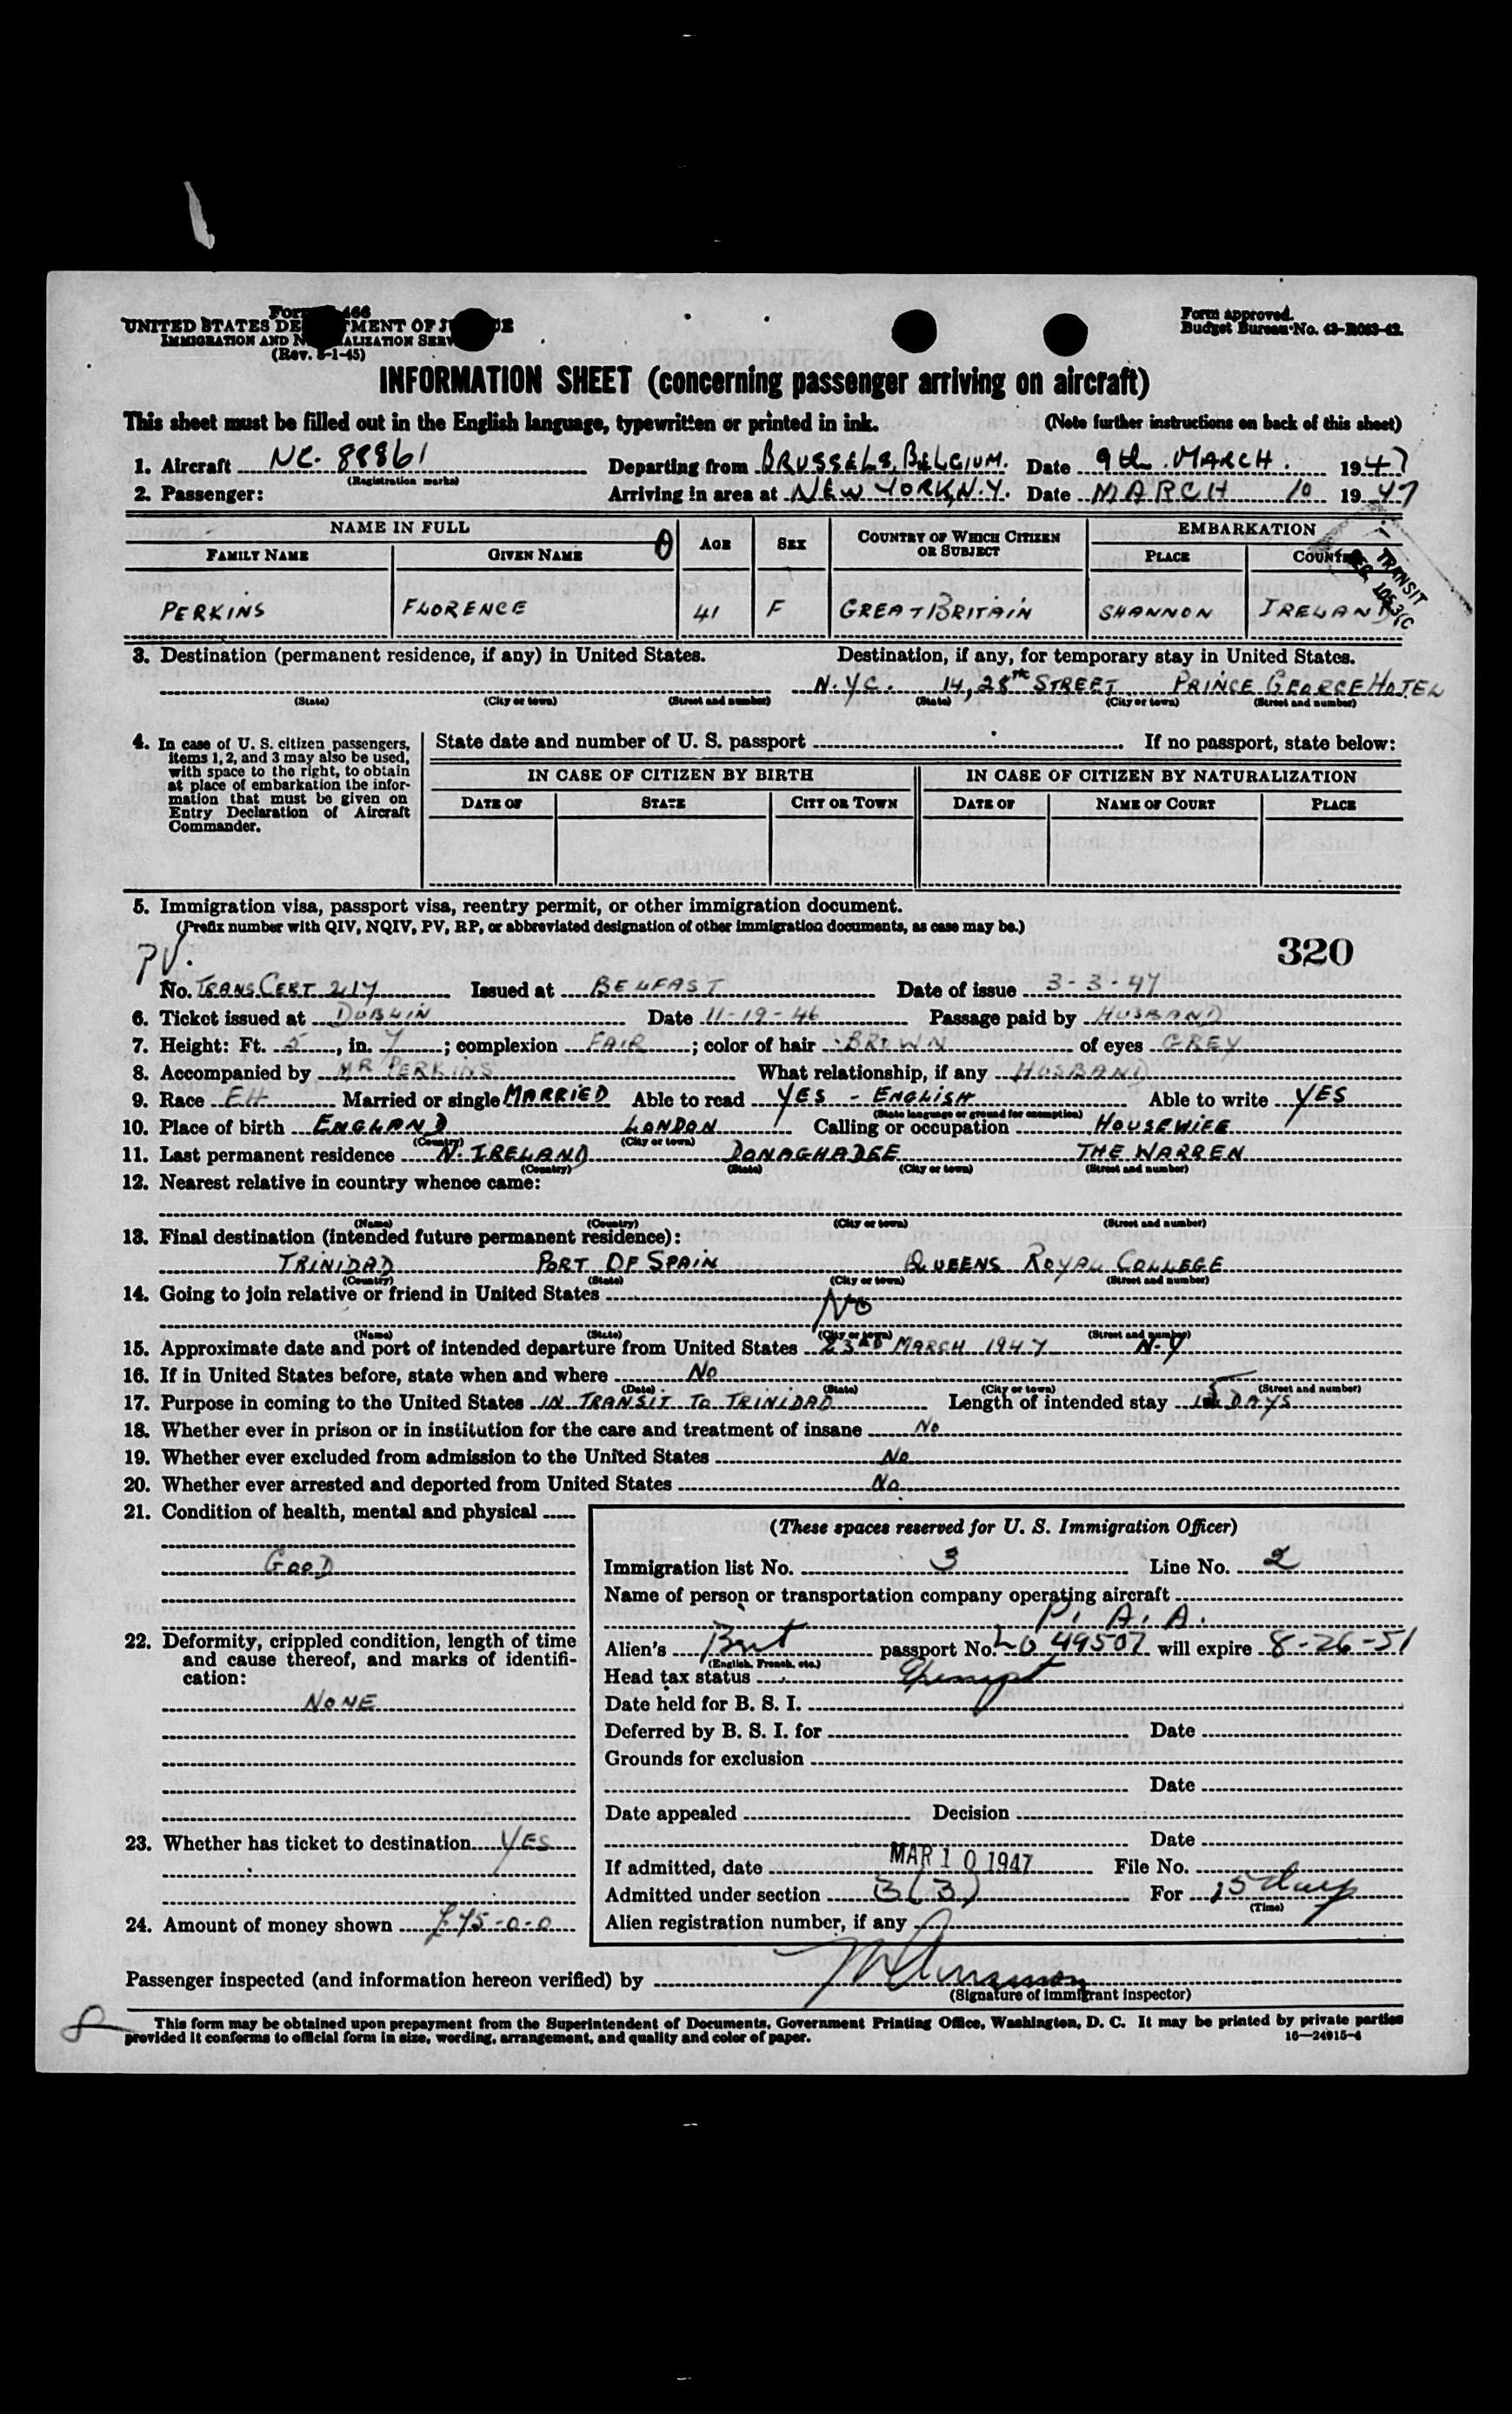 Form 466
UNITED STATES DEPARTMENT OF JUSTICE
IMMIGRATION AND NATURALIZATION SERVICE
(Rev. 5-1-45)
Form approved.
Budget Bureau No. 43-R083-42.
INFORMATION SHEET (concerning passenger arriving on aircraft)
This sheet must be filled out in the English language, typewritten or printed in ink. (Note further instructions on back of this sheet)
1. Aircraft NC- 88861 Departing from BRUSSELS, BELGIUM. Date 9th MARCH. 1947
(Registration marks)
2. Passenger: Arriving in area at NEW YORK, N.Y. Date MARCH 10 1947
NAME IN FULL AGE SEX COUNTRY OF WHICH CITIZEN OR SUBJECT EMBARKATION
FAMILY NAME GIVEN NAME PLACE COUNTRY
TRANSIT
REG 105.3(C
PERKINS FLORENCE 41 F GREAT BRITAIN SHANNON IRELAND
3. Destination (permanent residence, if any) in United States. Destination, if any, for temporary stay in United States.
N.Y.C. 14, 28TH STREET PRINCE GEORGE HOTEL
(State) (City or town) (Street and number) (State) (City or town) (Street and number)
4. In case of U. S. citizen passengers, items 1, 2, and 3 may also be used, with space to the right, to obtain at place of embarkation the information that must be given on Entry Declaration of Aircraft Commander.
State date and number of U. S. passport If no passport, state below:
IN CASE OF CITIZEN BY BIRTH IN CASE OF CITIZEN BY NATURALIZATION
DATE OF STATE CITY OR TOWN DATE OF NAME OF COURT PLACE
5. Immigration visa, passport visa, reentry permit, or other immigration document.
(Prefix number with QIV, NQIV, PV, RP, or abbreviated designation of other immigration documents, as case may be.)
320
PV.
No. TRANS CERT 217 Issued at BELFAST Date of issue 3-3-47
6. Ticket issued at DUBLIN Date 11-19-46 Passage paid by HUSBAND
7. Height: Ft. 5, in. 7; complexion FAIR; color of hair BROWN of eyes GREY
8. Accompanied by MR PERKINS What relationship, if any HUSBAND
9. Race EH Married or single MARRIED Able to read YES - ENGLISH Able to write YES
(State language or ground for exemption)
10. Place of birth ENGLAND LONDON Calling or occupation HOUSEWIFE
(Country) (City or town)
11. Last permanent residence N. IRELAND DONAGHADEE THE WARREN
(Country) (State) (City or town) (Street and number)
12. Nearest relative in country whence came:
(Name) (Country) (City or town) (Street and number)
13. Final destination (intended future permanent residence):
TRINIDAD PORT OF SPAIN QUEENS ROYAL COLLEGE
(Country) (State) (City or town) (Street and number)
14. Going to join relative or friend in United States
No
(Name) (State) (City or town) (Street and number)
15. Approximate date and port of intended departure from United States 23RD MARCH 1947 N.Y
16. If in United States before, state when and where No
(Date) (State) (City or town) (Street and number)
17. Purpose in coming to the United States IN TRANSIT TO TRINIDAD Length of intended stay 15 DAYS
18. Whether ever in prison or in institution for the care and treatment of insane No
19. Whether ever excluded from admission to the United States No
20. Whether ever arrested and deported from United States No.
21. Condition of health, mental and physical
GOOD
22. Deformity, crippled condition, length of time and cause thereof, and marks of identification:
NONE
23. Whether has ticket to destination YES
24. Amount of money shown £75-0-0
(These spaces reserved for U. S. Immigration Officer)
Immigration list No. 3 Line No. 2
Name of person or transportation company operating aircraft
P. A. A.
Alien's Brit passport No. L0 49507 will expire 8-26-51
(English, French, etc.)
Head tax status Exempt
Date held for B. S. I.
Deferred by B. S. I. for Date
Grounds for exclusion
Date
Date appealed Decision
Date
If admitted, date MAR 10 1947 File No.
Admitted under section 3(3) For 15 days
(Time)
Alien registration number, if any
Passenger inspected (and information hereon verified) by
(Signature of immigrant inspector)
This form may be obtained upon prepayment from the Superintendent of Documents, Government Printing Office, Washington, D. C. It may be printed by private parties
provided it conforms to official form in size, wording, arrangement, and quality and color of paper. 16—24915-4